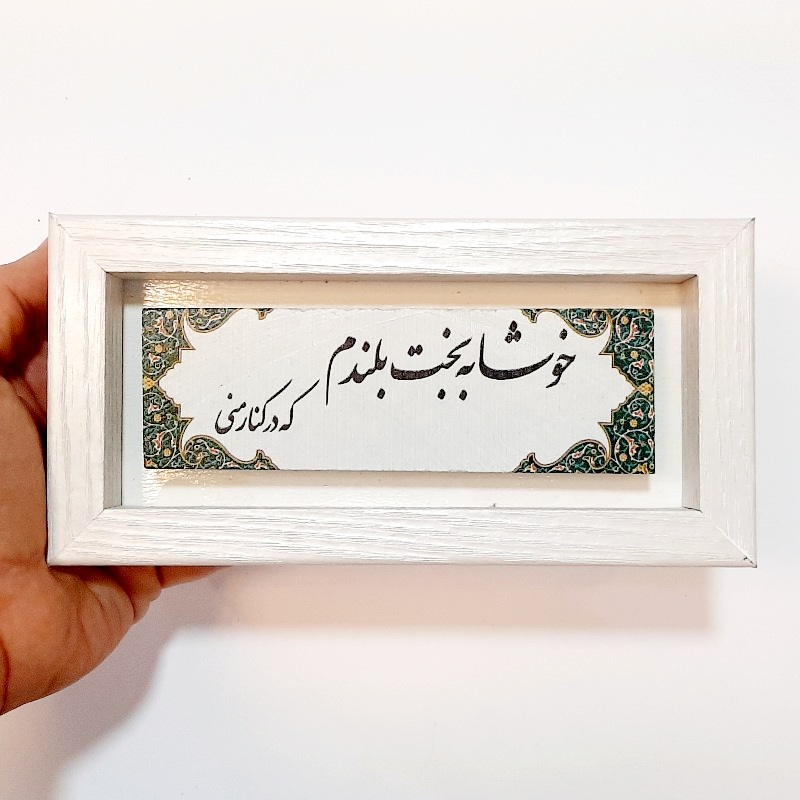 خوشا به بخت بلندم
که در کنار منی